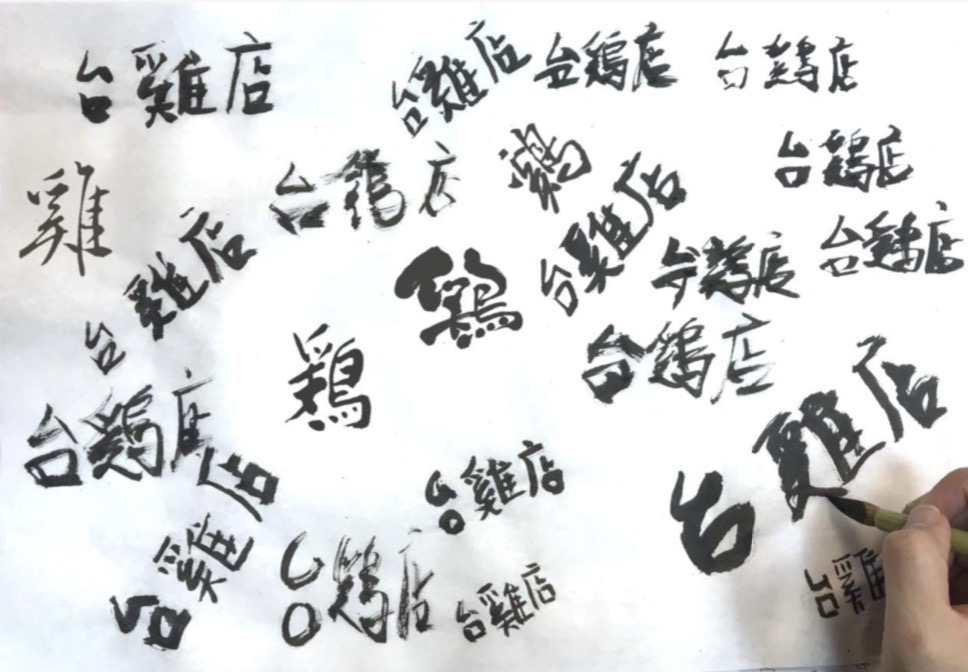 台雞店
台雞店
台鷄店
台鷄店
雞
台鷄店
鷄
台鷄店
台雞店
台雞店
台鷄店
台鷄店
鷄
鷄
台鷄店
台鷄店
台雞店
台雞店
台雞店
台鷄店
台雞店
台雞